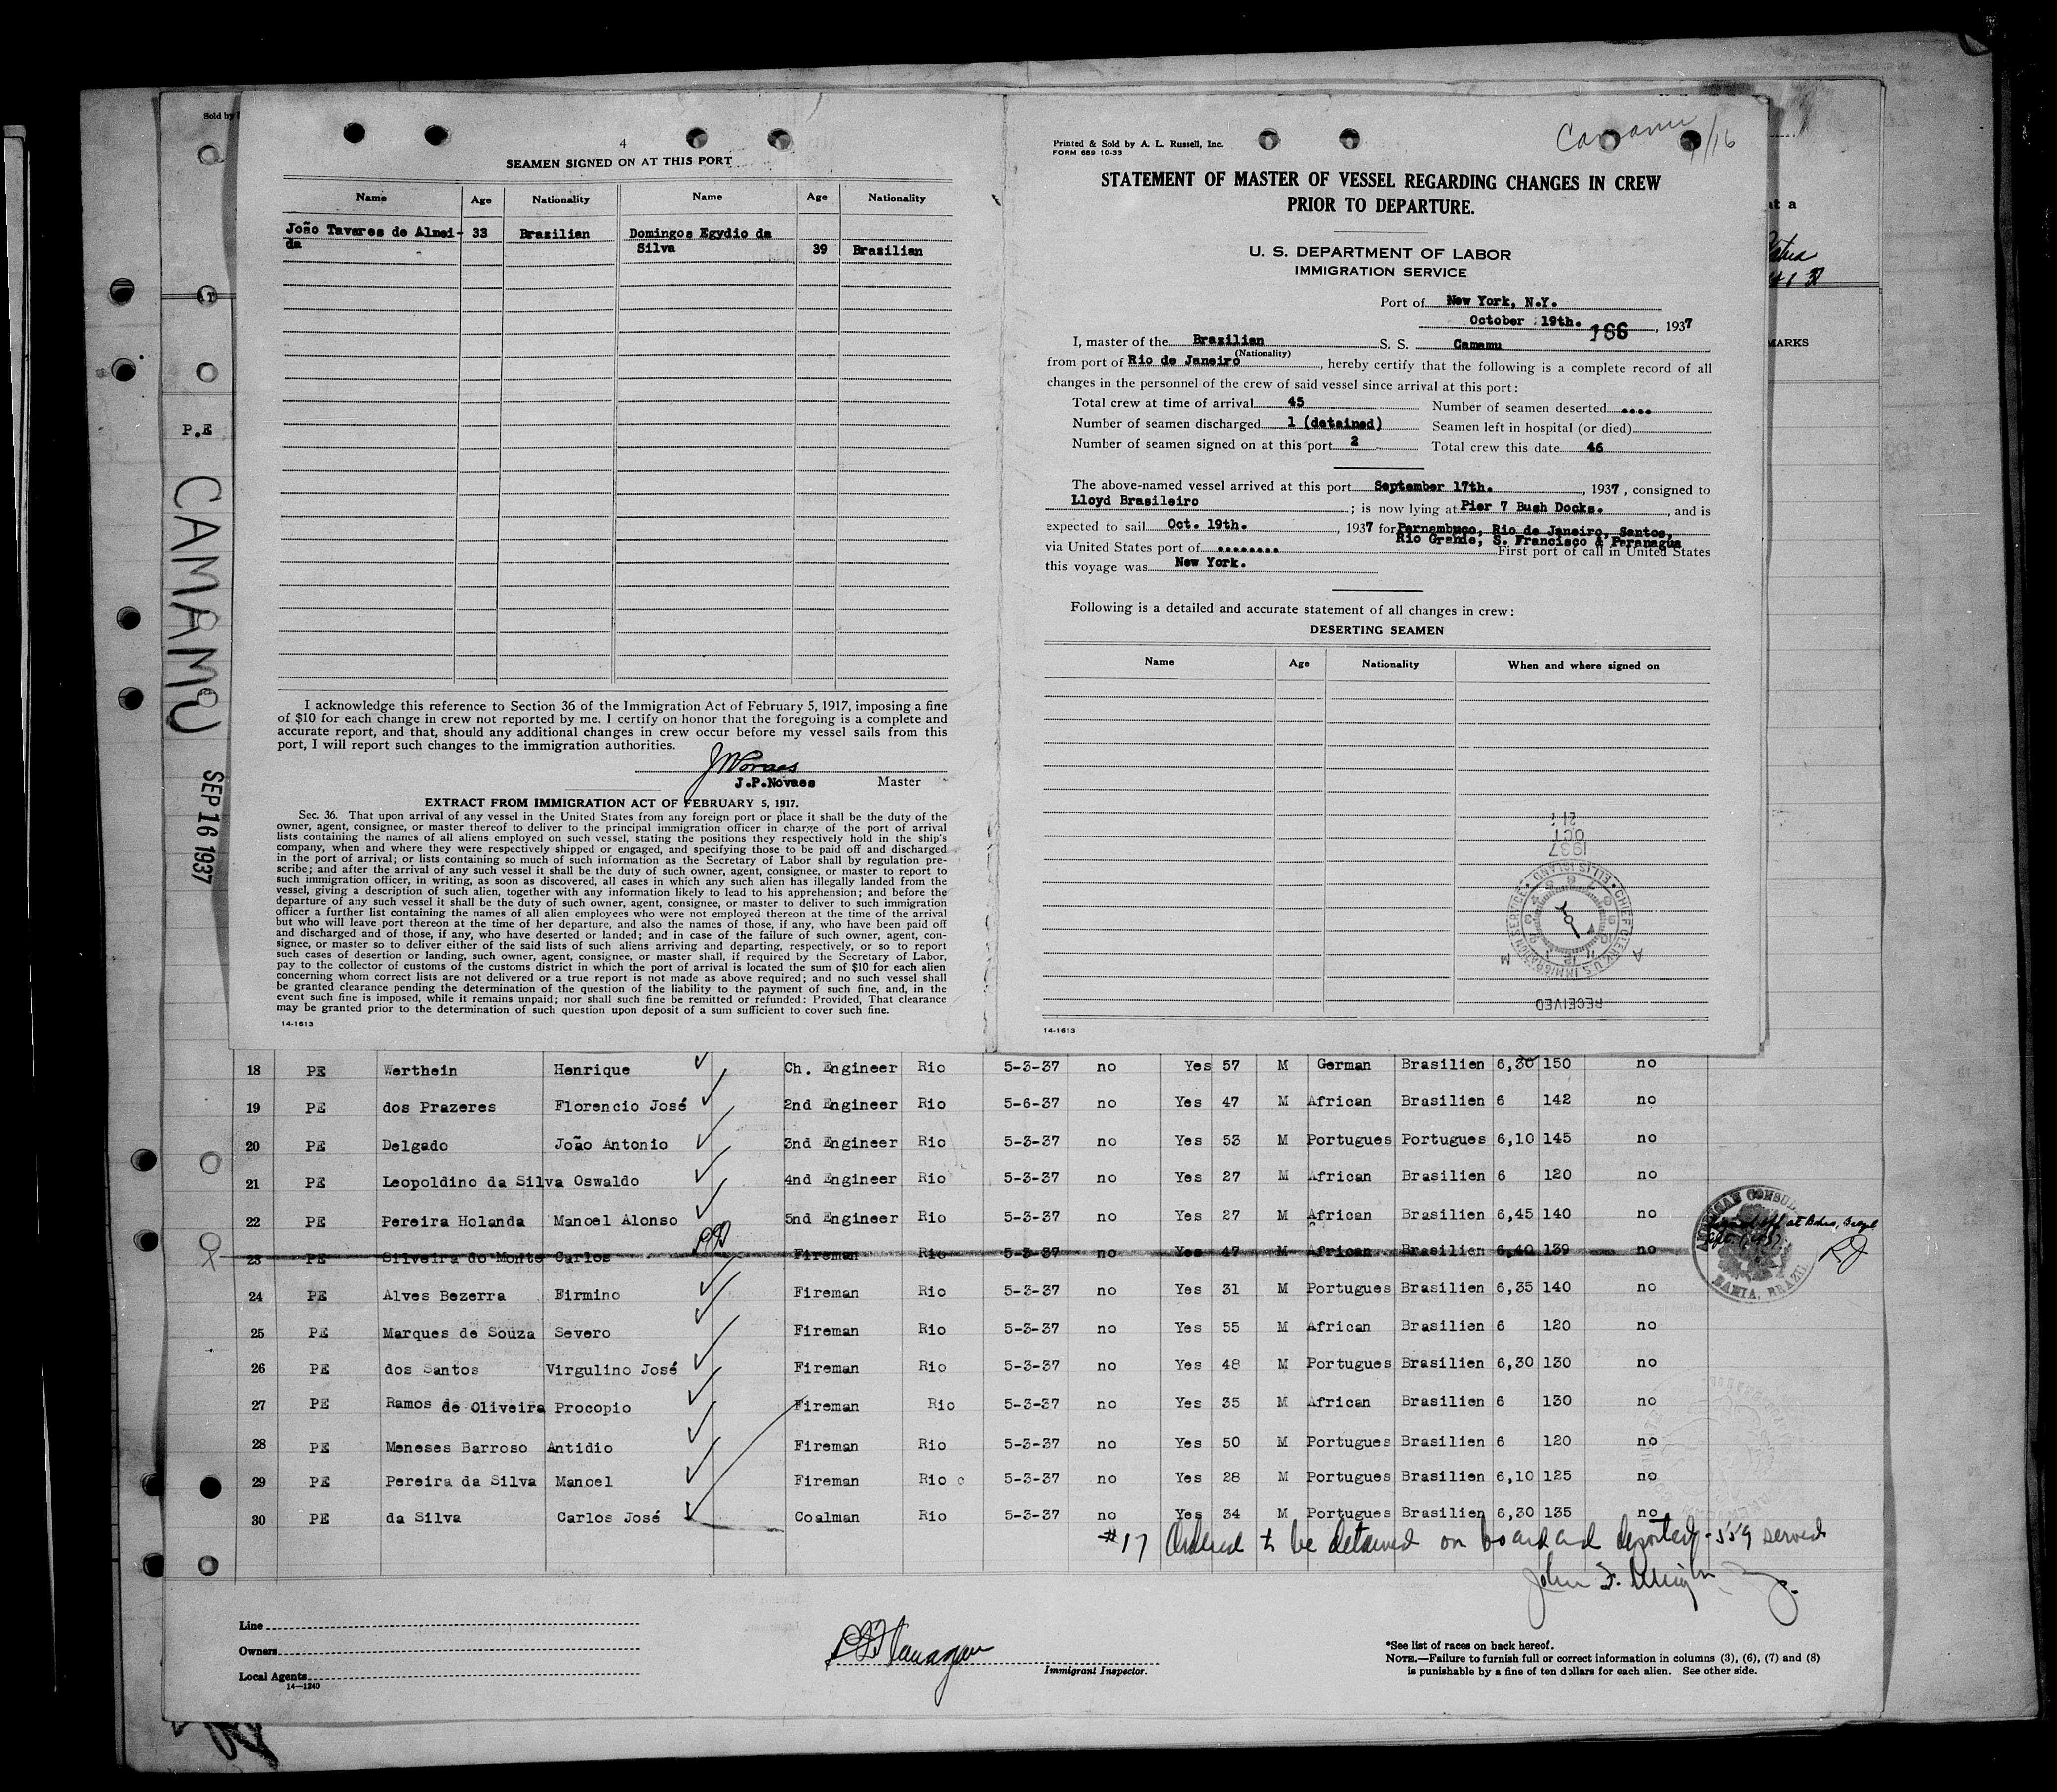 Sold by
P.E
CAMAMU
SEP 16 1937
4
SEAMEN SIGNED ON AT THIS PORT
Name Age Nationality Name Age Nationality
João Tavares de Almei- 33 Brazilian Domingos Egydio da
da Silva 39 Brazilian
I acknowledge this reference to Section 36 of the Immigration Act of February 5, 1917, imposing a fine
of $10 for each change in crew not reported by me. I certify on honor that the foregoing is a complete and
accurate report, and that, should any additional changes in crew occur before my vessel sails from this
port, I will report such changes to the immigration authorities.
J.P.Novaes Master
EXTRACT FROM IMMIGRATION ACT OF FEBRUARY 5, 1917.
Sec. 36. That upon arrival of any vessel in the United States from any foreign port or place it shall be the duty of the
owner, agent, consignee, or master thereof to deliver to the principal immigration officer in charge of the port of arrival
lists containing the names of all aliens employed on such vessel, stating the positions they respectively hold in the ship's
company, when and where they were respectively shipped or engaged, and specifying those to be paid off and discharged
in the port of arrival; or lists containing so much of such information as the Secretary of Labor shall by regulation pre-
scribe; and after the arrival of any such vessel it shall be the duty of such owner, agent, consignee, or master to report to
such immigration officer, in writing, as soon as discovered, all cases in which any such alien has illegally landed from the
vessel, giving a description of such alien, together with any information likely to lead to his apprehension; and before the
departure of any such vessel it shall be the duty of such owner, agent, consignee, or master to deliver to such immigration
officer a further list containing the names of all alien employees who were not employed thereon at the time of the arrival
but who will leave port thereon at the time of her departure, and also the names of those, if any, who have been paid off
and discharged and of those, if any, who have deserted or landed; and in case of the failure of such owner, agent, con-
signee, or master so to deliver either of the said lists of such aliens arriving and departing, respectively, or so to report
such cases of desertion or landing, such owner, agent, consignee, or master shall, if required by the Secretary of Labor,
pay to the collector of customs of the customs district in which the port of arrival is located the sum of $10 for each alien
concerning whom correct lists are not delivered or a true report is not made as above required; and no such vessel shall
be granted clearance pending the determination of the question of the liability to the payment of such fine, and, in the
event such fine is imposed, while it remains unpaid; nor shall such fine be remitted or refunded: Provided, That clearance
may be granted prior to the determination of such question upon deposit of a sum sufficient to cover such fine.
14-1613
Camamu 9/16
Printed & Sold by A. L. Russell, Inc.
FORM 689 10-33
STATEMENT OF MASTER OF VESSEL REGARDING CHANGES IN CREW
PRIOR TO DEPARTURE.
U. S. DEPARTMENT OF LABOR
IMMIGRATION SERVICE
Port of New York, N.Y.
October 19th. 166, 1937
I, master of the Brazilian S. S. Camamu
(Nationality)
from port of Rio de Janeiro, hereby certify that the following is a complete record of all
changes in the personnel of the crew of said vessel since arrival at this port:
Total crew at time of arrival 45 Number of seamen deserted ....
Number of seamen discharged 1 (detained) Seamen left in hospital (or died)
Number of seamen signed on at this port 2 Total crew this date 46
The above-named vessel arrived at this port September 17th., 1937, consigned to
Lloyd Brasileiro; is now lying at Pier 7 Bush Docks., and is
expected to sail Oct. 19th., 1937 for Pernambuco, Rio de Janeiro, Santos,
Rio Grande, S. Francisco & Paranagua
via United States port of ........ First port of call in United States
this voyage was New York.
Following is a detailed and accurate statement of all changes in crew:
DESERTING SEAMEN
Name Age Nationality When and where signed on
21
OCT
1937
CHIEF CLERK U.S. IMMIGRATION SERVICE ELLIS ISLAND
A M
RECEIVED
14-1613
at a
MARKS
18 PE Werthein Henrique Ch. Engineer Rio 5-3-37 no Yes 57 M German Brasilien 6,30 150 no
19 PE dos Prazeres Florencio José 2nd Engineer Rio 5-6-37 no Yes 47 M African Brasilien 6 142 no
20 PE Delgado João Antonio 3nd Engineer Rio 5-3-37 no Yes 53 M Portugues Portugues 6,10 145 no
21 PE Leopoldino da Silva Oswaldo 4nd Engineer Rio 5-3-37 no Yes 27 M African Brasilien 6 120 no
22 PE Pereira Holanda Manoel Alonso 5nd Engineer Rio 5-3-37 no Yes 27 M African Brasilien 6,45 140 no
23 PE Silveira do Monte Carlos Fireman Rio 5-3-37 no Yes 47 M African Brasilien 6,40 139 no
AMERICAN CONSUL
BAHIA, BRAZIL
24 PE Alves Bezerra Firmino Fireman Rio 5-3-37 no Yes 31 M Portugues Brasilien 6,35 140 no
25 PE Marques de Souza Severo Fireman Rio 5-3-37 no Yes 55 M African Brasilien 6 120 no
26 PE dos Santos Virgulino José Fireman Rio 5-3-37 no Yes 48 M Portugues Brasilien 6,30 130 no
27 PE Ramos de Oliveira Procopio Fireman Rio 5-3-37 no Yes 35 M African Brasilien 6 130 no
28 PE Meneses Barroso Antidio Fireman Rio 5-3-37 no Yes 50 M Portugues Brasilien 6 120 no
29 PE Pereira da Silva Manoel Fireman Rio 5-3-37 no Yes 28 M Portugues Brasilien 6,10 125 no
30 PE da Silva Carlos José Coalman Rio 5-3-37 no Yes 34 M Portugues Brasilien 6,30 135 no
#17 Ordered to be detained on board and deported - 559 served
Line
Owners
Local Agents
14-1240
Immigrant Inspector.
*See list of races on back hereof.
NOTE.—Failure to furnish full or correct information in columns (3), (6), (7) and (8)
is punishable by a fine of ten dollars for each alien. See other side.